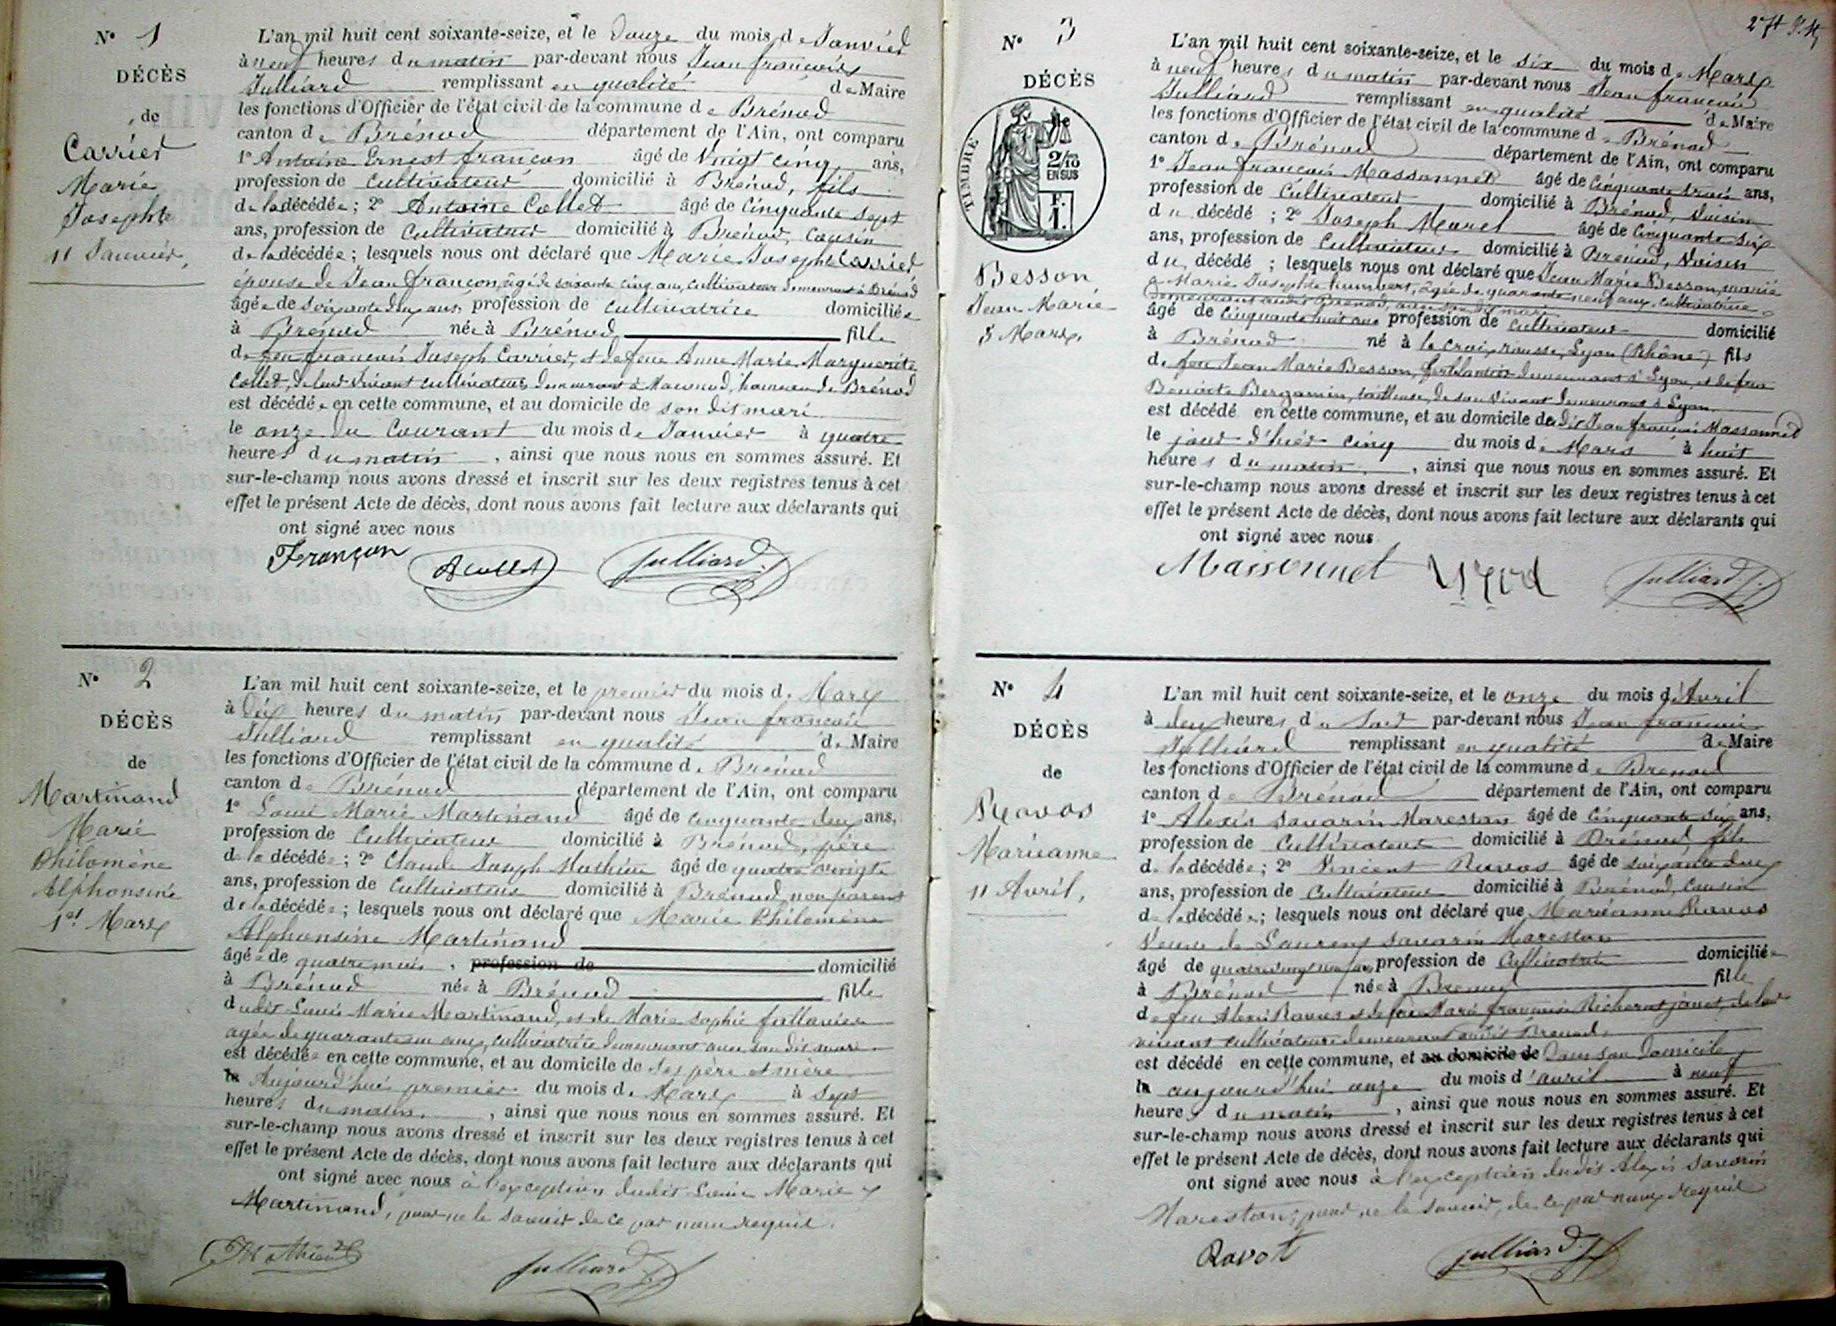 N° 1
DÉCÈS
de
Carrier
Marie
Josephte
11 Janvier,
L'an mil huit cent soixante-seize, et le douze du mois de Janvier
à neuf heures du matin par-devant nous Jean françois
Julliard remplissant en qualité de Maire
les fonctions d'Officier de l'état civil de la commune de Brénod
canton de Brénod département de l'Ain, ont comparu
1° Antoine Ernest françon âgé de Vingt cinq ans,
profession de Cultivateur domicilié à Brénod, fils
de la décédée ; 2° Antoine Collet âgé de Cinquante sept
ans, profession de Cultivateur domicilié à Brénod, Cousin
de la décédée ; lesquels nous ont déclaré que Marie Josephte Carrier
épouse de Jean françon, âgé de soixante cinq ans, cultivateur demeurant à Brénod
âgée de soixante deux ans, profession de cultivatrice domiciliée
à Brénod née à Brénod fille
de feu françois Joseph Carrier, et de feue Anne Marie Marguerite
Collet, de leur vivant cultivateurs demeurant à Macconod, hameau de Brénod
est décédée en cette commune, et au domicile de son dit mari
le onze du Courant du mois de Janvier à quatre
heures du matin, ainsi que nous nous en sommes assuré. Et
sur-le-champ nous avons dressé et inscrit sur les deux registres tenus à cet
effet le présent Acte de décès, dont nous avons fait lecture aux déclarants qui
ont signé avec nous
Françon A Collet Julliard
N° 2
DÉCÈS
de
Martinand
Marie
Philomène
Alphonsine
1er Mars
L'an mil huit cent soixante-seize, et le premier du mois de Mars
à dix heures du matin par-devant nous Jean françois
Julliard remplissant en qualité de Maire
les fonctions d'Officier de l'état civil de la commune de Brénod
canton de Brénod département de l'Ain, ont comparu
1° Louis Marie Martinand âgé de cinquante deux ans,
profession de Cultivateur domicilié à Brénod, père
de la décédée ; 2° Claude Joseph Mathieu âgé de quatre vingts
ans, profession de Cultivateur domicilié à Brénod, non parent
de la décédée ; lesquels nous ont déclaré que Marie Philomène
Alphonsine Martinand
âgée de quatre mois, profession de domicilié
à Brénod née à Brénod fille
dudit Louis Marie Martinand, et de Marie Sophie
âgée de quarante un ans, cultivatrice demeurant avec son dit mari
est décédée en cette commune, et au domicile de ses père et mère
le Aujourd'hui premier du mois de Mars à sept
heures du matin, ainsi que nous nous en sommes assuré. Et
sur-le-champ nous avons dressé et inscrit sur les deux registres tenus à cet
effet le présent Acte de décès, dont nous avons fait lecture aux déclarants qui
ont signé avec nous à l'exception dudit Louis Marie
Martinand, pour ne le savoir de ce par nous requis.
Mathieu Julliard
N° 3
DÉCÈS
TIMBRE
2/10
EN SUS
F.
1.
Besson
Jean Marie
5 Mars,
L'an mil huit cent soixante-seize, et le six du mois de Mars
à neuf heures du matin par-devant nous Jean françois
Julliard remplissant en qualité de Maire
les fonctions d'Officier de l'état civil de la commune de Brénod
canton de Brénod département de l'Ain, ont comparu
1° Jean françois Massonnet âgé de Cinquante trois ans,
profession de Cultivateur domicilié à Brénod, Voisin
du décédé ; 2° Joseph Morel âgé de Cinquante six
ans, profession de Cultivateur domicilié à Brénod, Voisin
du décédé ; lesquels nous ont déclaré que Jean Marie Besson, marié
à Marie Josephte humbert, âgée de quarante neuf ans, cultivatrice
demeurant audit Brénod, avec son dit mari
âgé de Cinquante huit ans profession de Cultivateur domicilié
à Brénod né à la Croix rousse, Lyon (Rhône) fils
de feu Jean Marie Besson, ferblantier demeurant à Lyon, et de feue
Benoite Bergamin, tailleuse, de son vivant demeurant à Lyon
est décédé en cette commune, et au domicile dudit Jean françois Massonnet
le jour d'hier cinq du mois de Mars à huit
heures du matin, ainsi que nous nous en sommes assuré. Et
sur-le-champ nous avons dressé et inscrit sur les deux registres tenus à cet
effet le présent Acte de décès, dont nous avons fait lecture aux déclarants qui
ont signé avec nous
Massonnet Julliard
N° 4
DÉCÈS
de
Ravos
Marieanne
11 Avril,
L'an mil huit cent soixante-seize, et le onze du mois d'Avril
à deux heures du soir par-devant nous Jean françois
Julliard remplissant en qualité de Maire
les fonctions d'Officier de l'état civil de la commune de Brénod
canton de Brénod département de l'Ain, ont comparu
1° Alexis Savarin Mareston âgé de Cinquante six ans,
profession de Cultivateur domicilié à Brénod fils
de la décédée ; 2° Vincent Ravos âgé de soixante deux
ans, profession de Cultivateur domicilié à Brénod, Cousin
de la décédée ; lesquels nous ont déclaré que Marieanne Ravos
Veuve de Laurent Savarin Mareston
âgé de quatre vingt neuf ans profession de Cultivatrice domiciliée
à Brénod née à Brénod fille
de feu Alexis Ravos et de feue Marie françoise de leur
vivant cultivateurs demeurant audit Brénod
est décédé en cette commune, et au domicile de dans son domicile
le aujourd'hui onze du mois d'avril à neuf
heures du matin, ainsi que nous nous en sommes assuré. Et
sur-le-champ nous avons dressé et inscrit sur les deux registres tenus à cet
effet le présent Acte de décès, dont nous avons fait lecture aux déclarants qui
ont signé avec nous à l'exception dudit Alexis Savarin
Mareston, pour ne le savoir, de ce par nous requis
Ravot Julliard